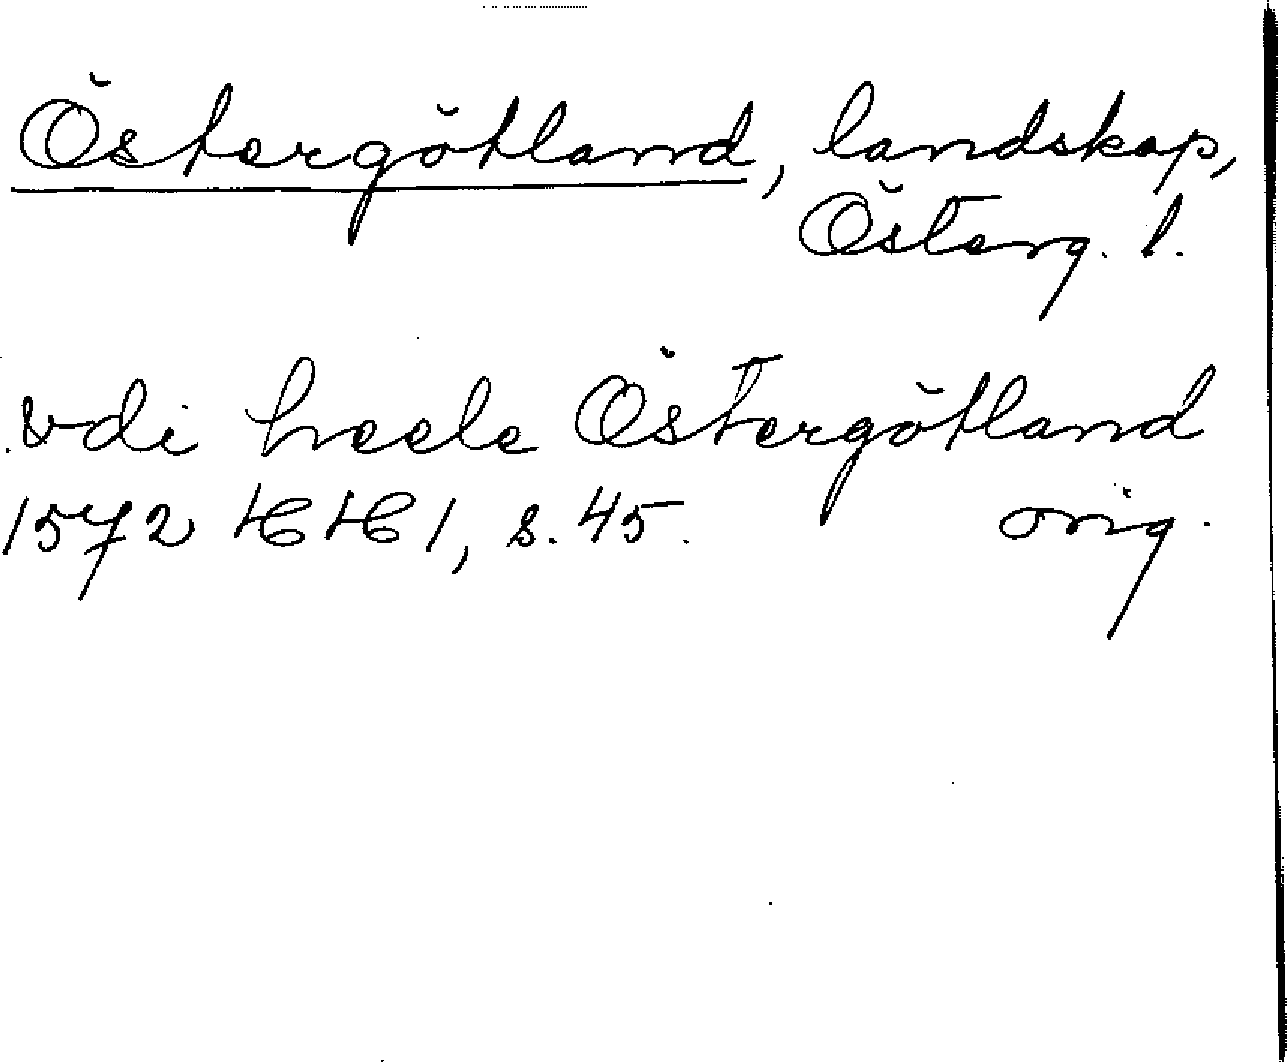 Östergötland, landskap,
Österg. l.
vdi heele Östergötland
1572 HH 1, s. 45. orig.